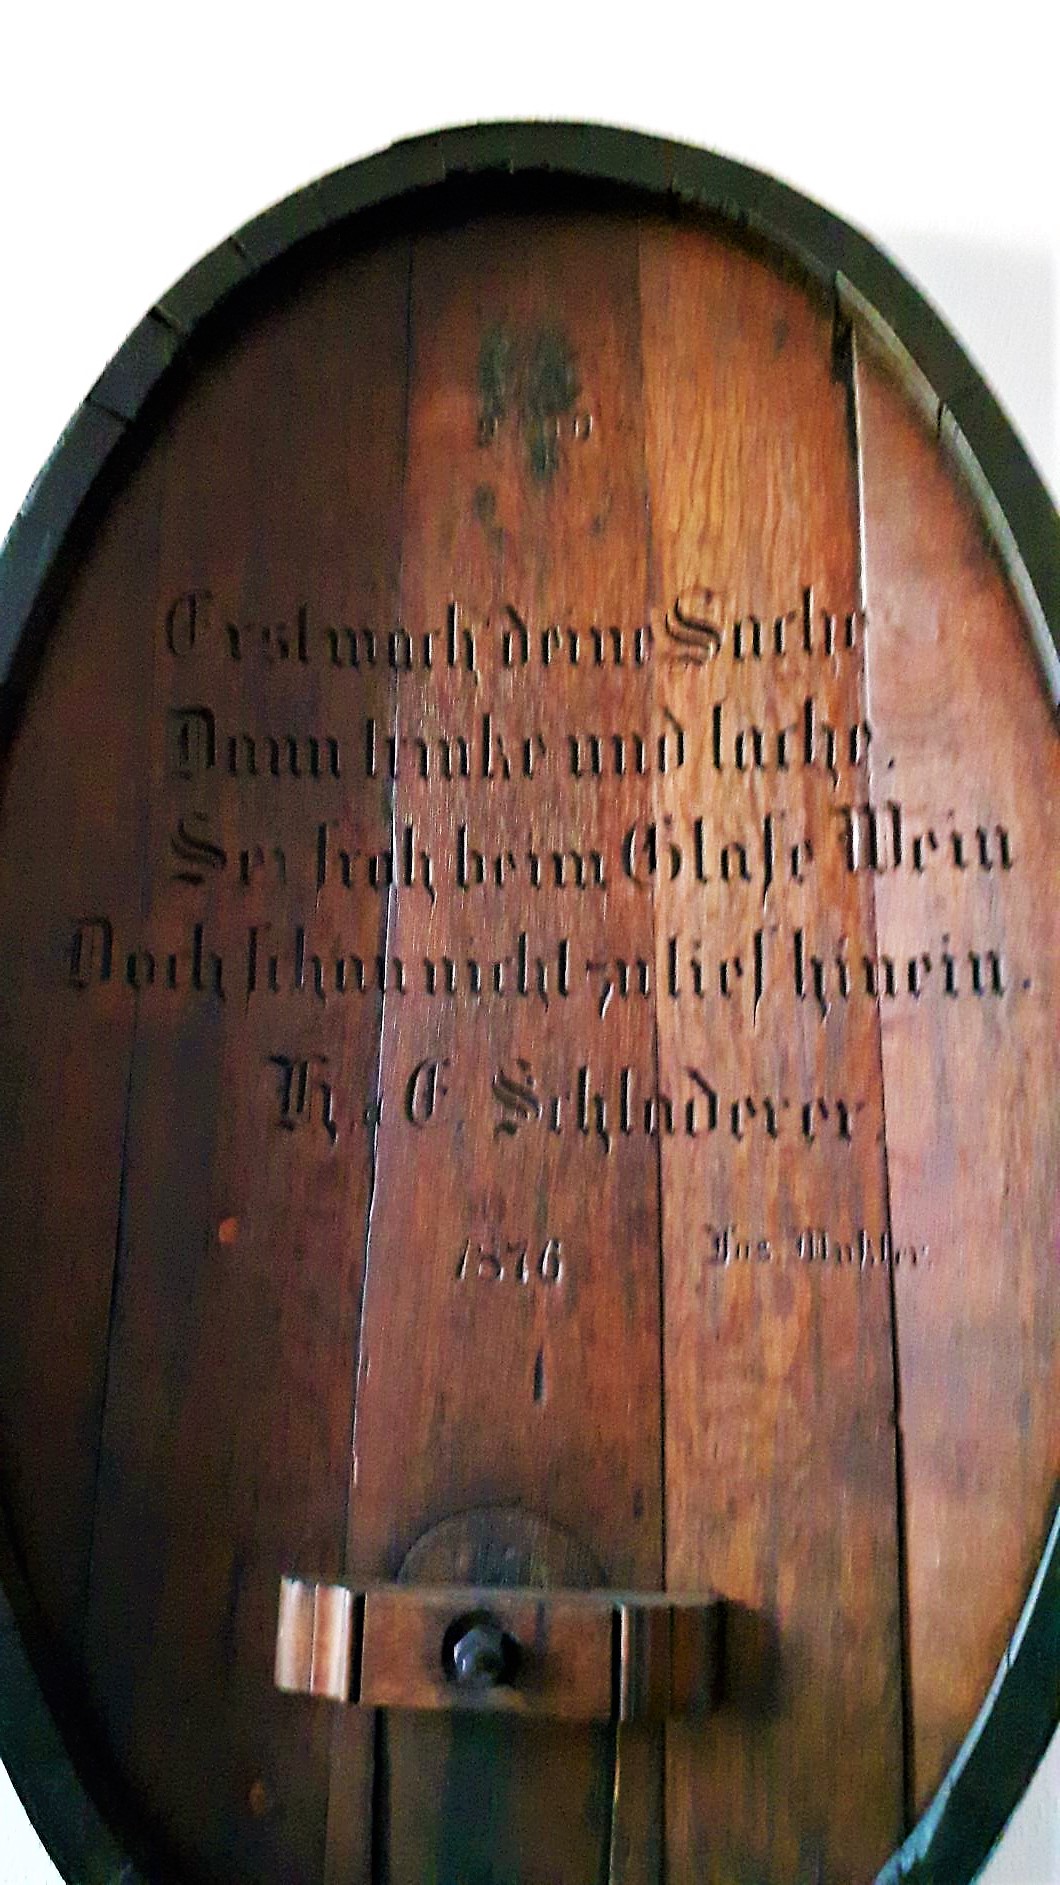 Erst mach deine Sache
Dann trinke und lache.
Sei froh beim Glase Wein
Doch schau nicht zu tief hinein.
H. C. Schladerer.
1876
Jos.